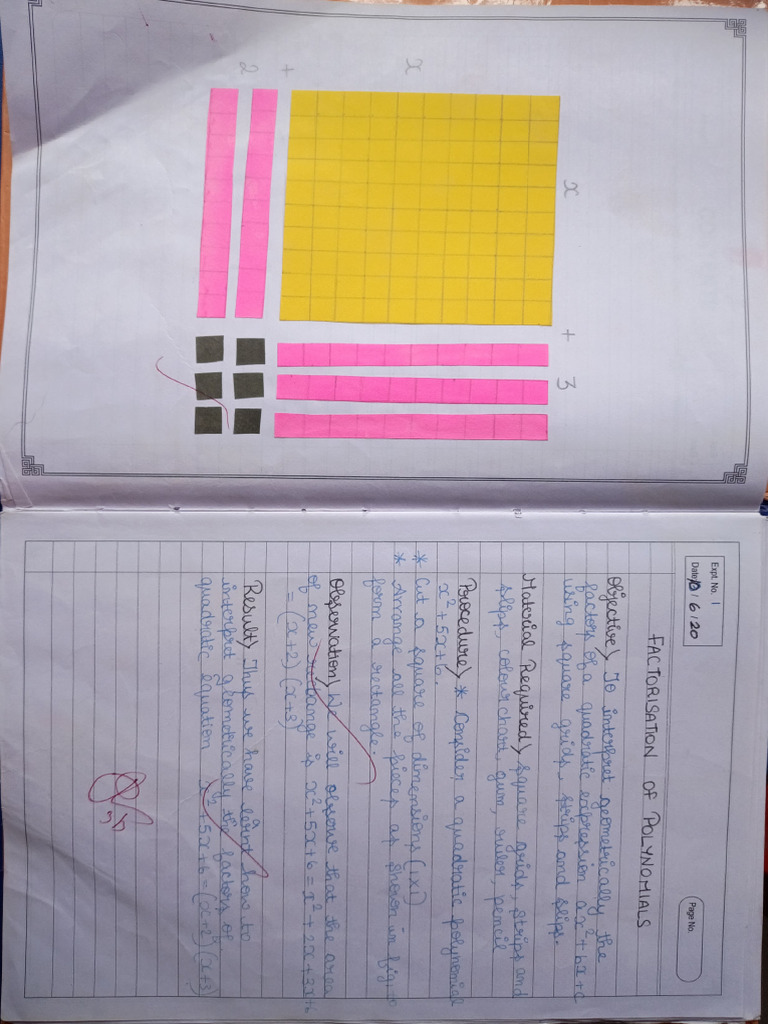 x + 3
x
+
2
Expt. No. 1
Date 10/6/20
Page No.
FACTORISATION OF POLYNOMIALS
Objective> To interpret geometrically the
factors of a quadratic expression ax²+bx+c
using square grids, strips and slips.
Material Required> square grids, strips and
slips, colour chart, gum, ruler, pencil
Procedure> * Consider a quadratic polynomial
x²+5x+6.
* Cut a square of dimensions (1x1)
* Arrange all the pieces as shown in fig
form a rectangle.
Observation> We will observe that the area
of new rectange is x²+5x+6 = x²+2x+3x+6
= (x+2) (x+3)
Result> Thus we have learnt how to
interpret geometrically the factors of
quadratic equation x²+5x+6=(x+2)(x+3)